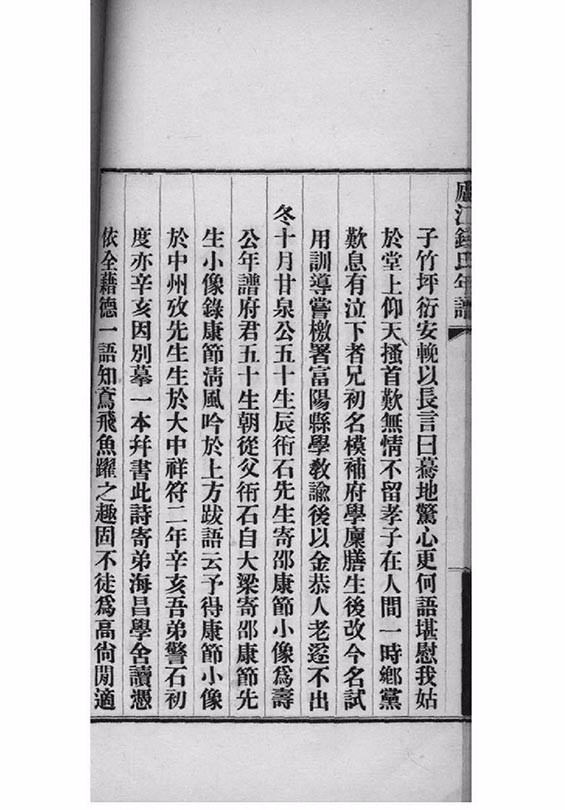 廬江錢氏年譜
子竹坪衍安輓以長言曰驀地驚心更何語堪慰我姑
於堂上仰天搔首歎無情不留孝子在人間一時鄉黨
歎息有泣下者兄初名模補府學廩膳生後改今名試
用訓導嘗檄署富陽縣學敎諭後以金恭人老遂不出
冬十月甘泉公五十生辰衎石先生寄邵康節小像爲壽
公年譜府君五十生朝從父衎石自大梁寄邵康節先
生小像錄康節淸風吟於上方跋語云予得康節小像
於中州攷先生生於大中祥符二年辛亥吾弟警石初
度亦辛亥因別摹一本幷書此詩寄弟海昌學舍讀憑
依全藉德一語知鳶飛魚躍之趣固不徒爲高尙閒適